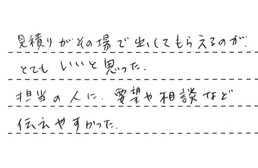 見積りがその場で出してもらえるのが、
とてもいいと思った。
担当の人に、要望や相談など
伝えやすかった。